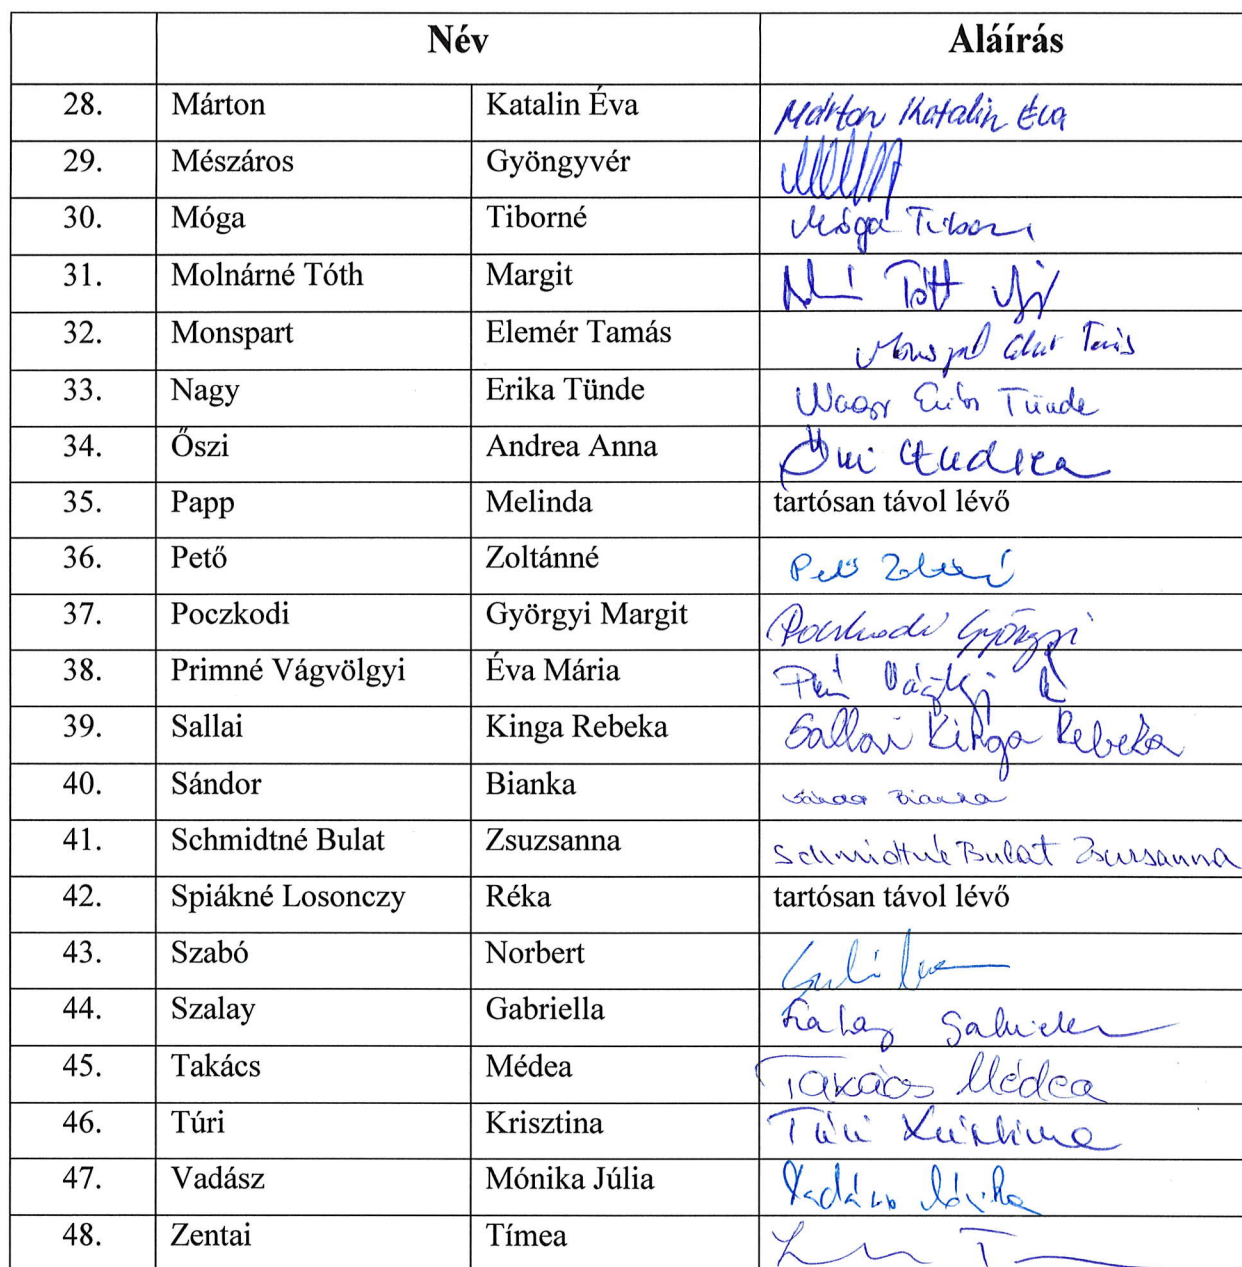 Név Aláírás
28. Márton Katalin Éva Márton Katalin Éva
29. Mészáros Gyöngyvér
30. Móga Tiborné Móga
31. Molnárné Tóth Margit Tóth
32. Monspart Elemér Tamás
33. Nagy Erika Tünde Nagy Erika Tünde
34. Őszi Andrea Anna Őszi Andrea
35. Papp Melinda tartósan távol lévő
36. Pető Zoltánné Pető
37. Poczkodi Györgyi Margit Poczkodi Györgyi
38. Primné Vágvölgyi Éva Mária
39. Sallai Kinga Rebeka Sallai Kinga Rebeka
40. Sándor Bianka Sándor Bianka
41. Schmidtné Bulat Zsuzsanna Schmidtné Bulat Zsuzsanna
42. Spiákné Losonczy Réka tartósan távol lévő
43. Szabó Norbert
44. Szalay Gabriella Szalay
45. Takács Médea Takács Médea
46. Túri Krisztina Túri Krisztina
47. Vadász Mónika Júlia Vadász Mónika
48. Zentai Tímea